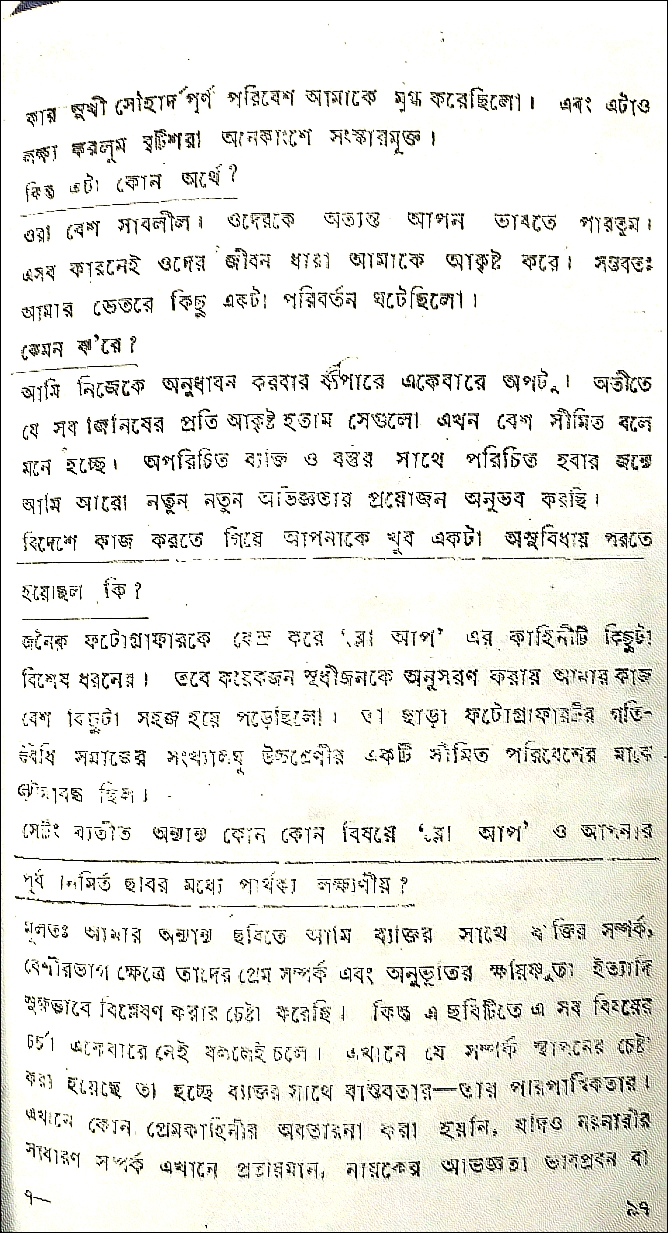 কার সুখী সৌহার্দপূর্ণ পরিবেশ আমাকে মুগ্ধ করেছিলো। এবং এটাও
লক্ষ্য করলুম বৃটিশরা অনেকাংশে সংস্কারমুক্ত।
কিন্তু এটা কোন অর্থে?
ওরা বেশ সাবলীল। ওদেরকে অত্যন্ত আপন ভাবতে পারতুম।
এসব কারনেই ওদের জীবন ধারা আমাকে আকৃষ্ট করে। সম্ভবতঃ
আমার ভেতরে কিছু একটা পরিবর্তন ঘটেছিলো।
কেমন ক'রে?
আমি নিজেকে অনুধাবন করবার ব্যাপারে একেবারে অপটু। অতীতে
যে সব জিনিষের প্রতি আকৃষ্ট হতাম সেগুলো এখন বেশ সীমিত বলে
মনে হচ্ছে। অপরিচিত ব্যক্তি ও বস্তুর সাথে পরিচিত হবার জন্যে
আমি আরো নতুন নতুন অভিজ্ঞতার প্রয়োজন অনুভব করছি।
বিদেশে কাজ করতে গিয়ে আপনাকে খুব একটা অসুবিধায় পরতে
হয়েছিল কি?
জনৈক ফটোগ্রাফারকে কেন্দ্র করে 'ব্লো আপ' এর কাহিনীটি কিছুটা
বিশেষ ধরনের। তবে কয়েকজন সুধীজনকে অনুসরণ করায় আমার কাজ
বেশ কিছুটা সহজ হয়ে পড়েছিলো। তা ছাড়া ফটোগ্রাফারটির গতি-
বিধি সমাজের সংখ্যালঘু উচ্চশ্রেণীর একটি সীমিত পরিবেশের মাঝে
সীমাবদ্ধ ছিল।
সেটিং ব্যতীত অন্যান্য কোন কোন বিষয়ে 'ব্লো আপ' ও আপনার
পূর্ব নির্মিত ছবির মধ্যে পার্থক্য লক্ষ্যণীয়?
মূলতঃ আমার অন্যান্য ছবিতে আমি ব্যক্তির সাথে ব্যক্তির সম্পর্ক,
বেশীরভাগ ক্ষেত্রে তাদের প্রেম সম্পর্ক এবং অনুভূতির ক্ষয়িষ্ণুতা ইত্যাদি
সুক্ষভাবে বিশ্লেষণ করার চেষ্টা করেছি। কিন্তু এ ছবিটিতে এ সব বিষয়ের
চর্চা একেবারে নেই বললেই চলে। এখানে যে সম্পর্ক স্থাপনের চেষ্টা
করা হয়েছে তা হচ্ছে ব্যক্তির সাথে বাস্তবতার—তার পারপার্শ্বিকতার।
এখানে কোন প্রেমকাহিনীর অবতারনা করা হয়নি, যদিও নরনারীর
সাধারণ সম্পর্ক এখানে প্রতীয়মান, নায়কের অভিজ্ঞতা ভাবপ্রবন বা
৭—
৯৭